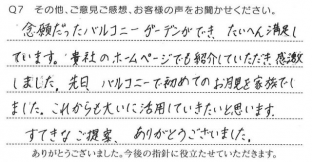 Q7 その他、ご意見ご感想、お客様の声をお聞かせください。
念願だったバルコニーガーデンができ、たいへん満足し
ています。貴社のホームページでも紹介していただき感激
しました。先日、バルコニーで初めてのお月見を家族でし
ました。これからも大いに活用していきたいと思います。
すてきなご提案、ありがとうございました。
ありがとうございました。今後の指針に役立たせていただきます。